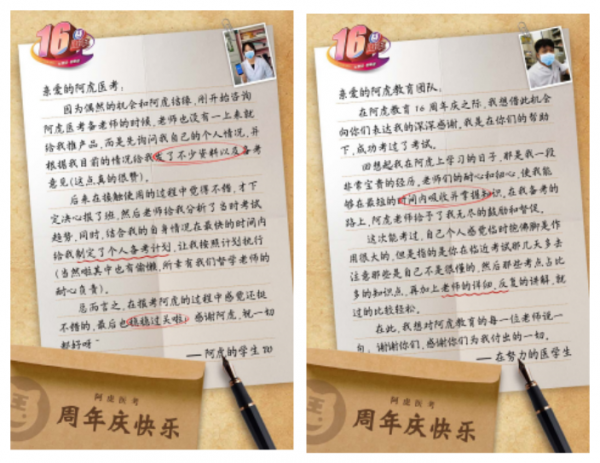 16
亲爱的阿虎医考：
因为偶然的机会和阿虎结缘，刚开始咨询
阿虎医考备老师的时候，老师也没有一上来就
给我推产品，而是先询问我自己的个人情况，并
根据我目前的情况给我发了不少资料以及备考
意见(这点真的很赞)。
后来在接触使用的过程中觉得不错，才下
定决心报了班，然后老师给我分析了当时考试
趋势，同时，结合我的自身情况在最快的时间内
给我制定了个人备考计划，让我按照计划执行
(当然啦其中也有偷懒，所幸有我们督学老师的
耐心负责)。
总而言之，在报考阿虎的过程中感觉还挺
不错的，最后也稳稳过关啦，感谢阿虎，祝一切
都好呀~
——阿虎的学生
阿虎医考
周年庆快乐
16
亲爱的阿虎教育团队：
在阿虎教育16周年庆之际，我想借此机会
向你们表达我的深深感谢，我是在你们的帮助
下，成功考过了考试。
回想起我在阿虎上学习的日子，那是我一段
非常宝贵的经历，老师们的耐心和细心，使我能
够在最短的时间内吸收并掌握知识，在我备考的
路上，阿虎老师给予了我无尽的鼓励和督促。
这次能考过，自己个人感觉临时抱佛脚是作
用很大的，但是指的是你在临近考试那几天多去
注意那些是自己不是很懂的，然后那些考点占比
多的知识点，再加上老师的详细，反复的讲解，就
过的比较轻松。
在此，我想对阿虎教育的每一位老师说一
句，谢谢你们，感谢你们为我付出的一切。
——在努力的医学生
阿虎医考
周年庆快乐